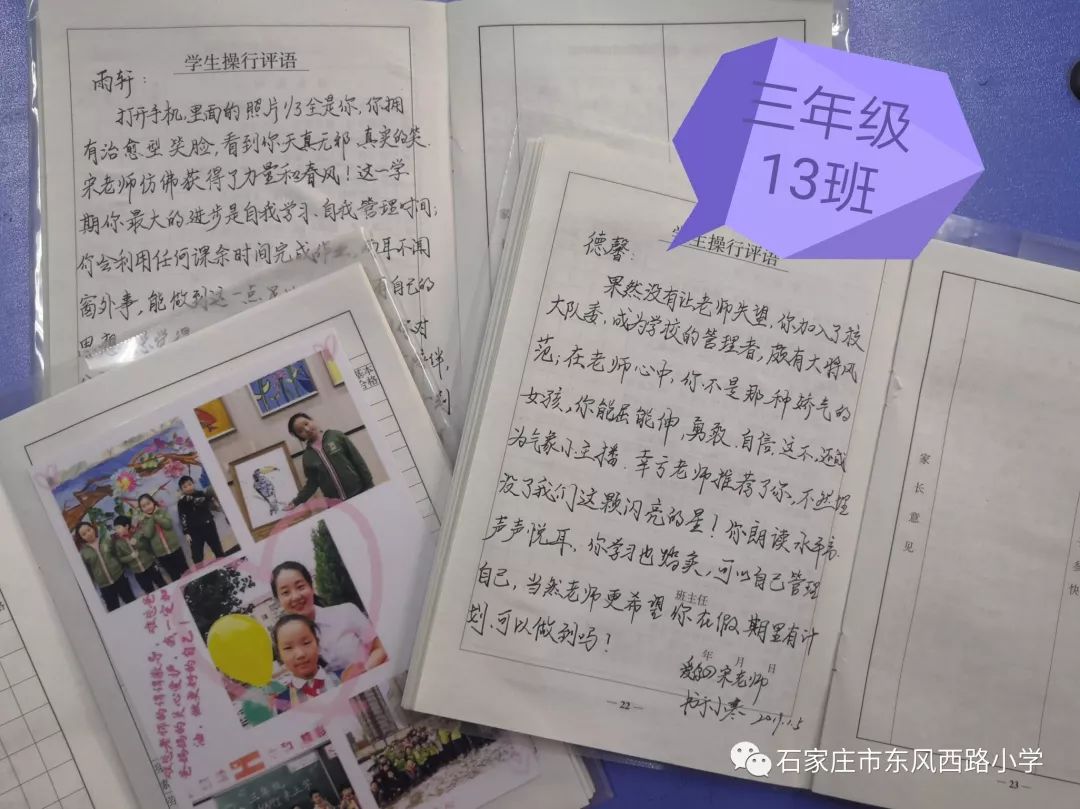 学生操行评语
雨轩：
打开手机，里面的照片1/3全是你，你拥
有治愈型笑脸，看到你天真无邪、真实的笑，
宋老师仿佛获得了力量和春风！这一学
期你最大的进步是自我学习、自我管理时间；
你会利用任何课余时间完成作业，两耳不闻
窗外事，能做到这一点
自己的
思想
你对
伴，
三年级
13班
学生操行评语
德馨：
果然没有让老师失望，你加入了校
大队委，成为学校的管理者，颇有大将风
范；在老师心中，你不是那种娇气的
女孩，你能屈能伸，勇敢、自信，这不，还成
为气象小主播，幸亏老师推荐了你，不然埋
没了我们这颗闪亮的星！你朗读
声声悦耳，你学习也踏实，可以自己管理
自己，当然老师更希望你在假期里有计
划，可以做到吗！
班主任
年 月 日
爱你的宋老师
书于小寒 2019.1.5
— 22 —
家长意见
— 23 —
基本合格
三年级
石家庄市东风西路小学